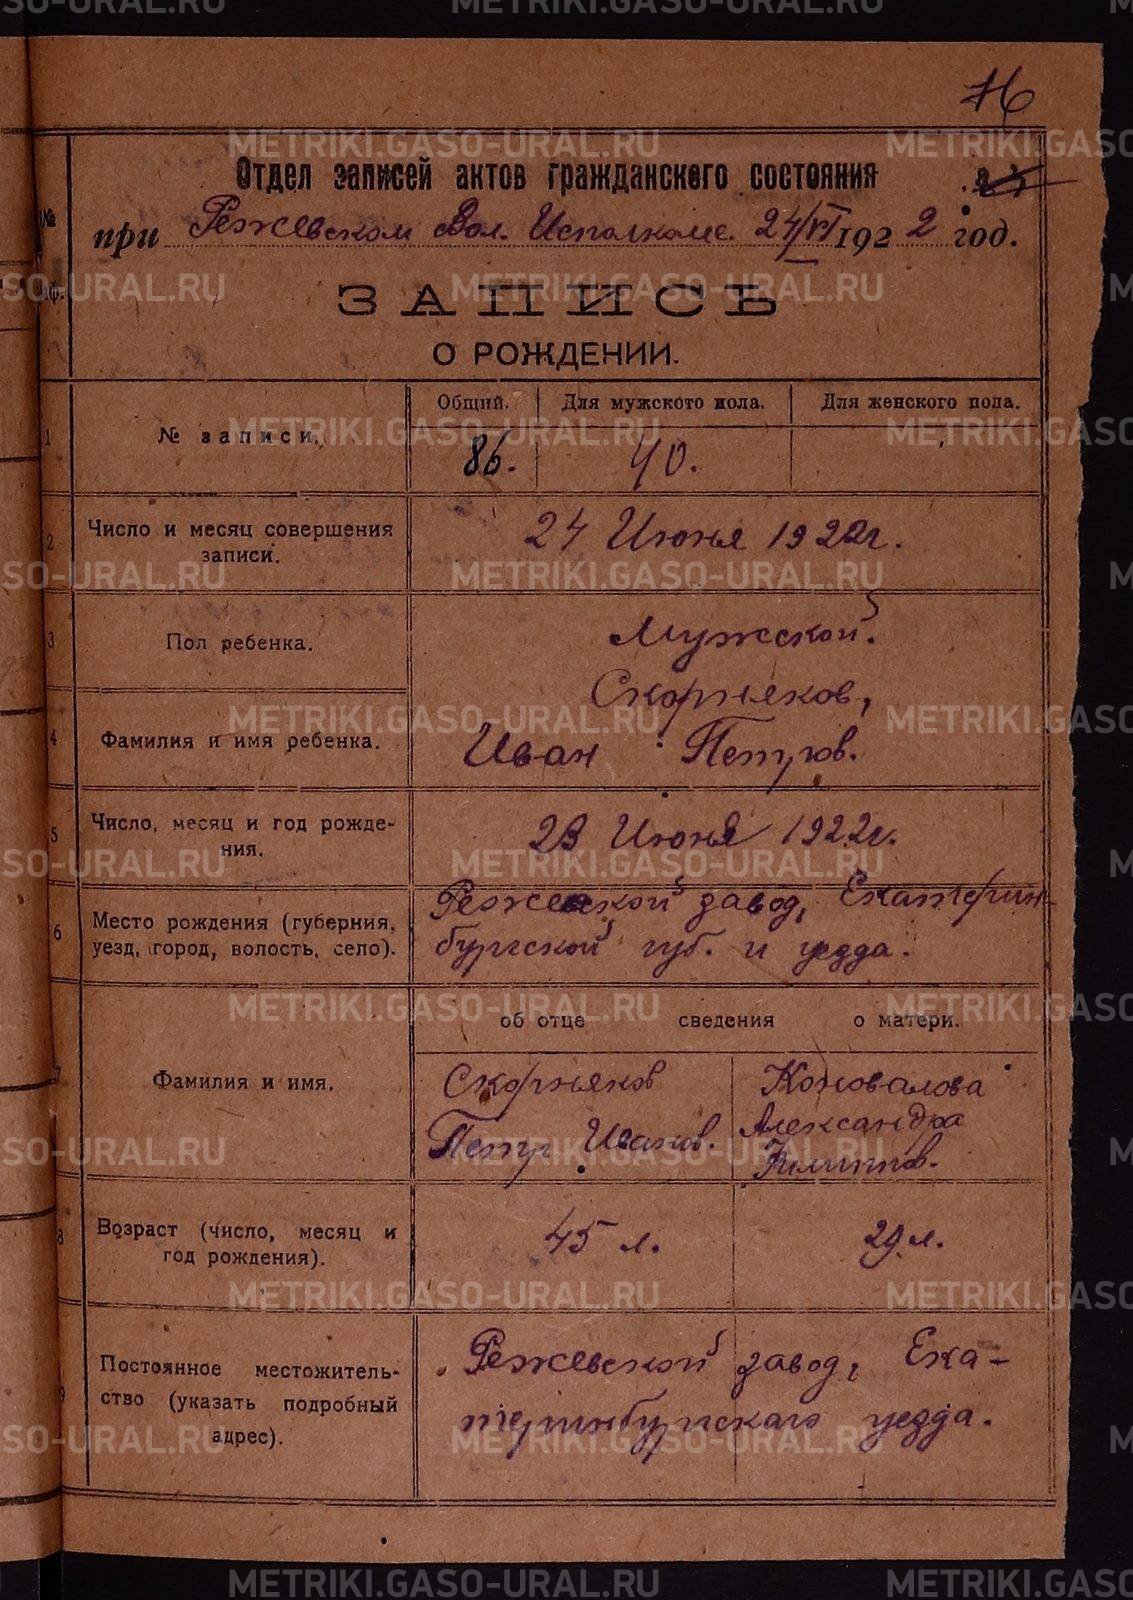 76
Отдел записей актов гражданского состояния
при Режевском Вол. Исполкоме. 24/VI 1922 год.
ЗАПИСЬ
О РОЖДЕНИИ.
Общий. Для мужского пола. Для женского пола.
1 № записи. 86. 40.
2 Число и месяц совершения
записи. 24 Июня 1922г.
3 Пол ребенка. Мужской.
Скорняков,
4 Фамилия и имя ребенка. Иван Петров.
5 Число, месяц и год рожде-
ния. 23 Июня 1922г.
Режевской завод, Екатерин-
6 Место рождения (губерния,
уезд, город, волость, село). бургской губ. и уезда.
об отце сведения о матери.
7 Фамилия и имя. Скорняков Коновалова
Петр Иванов. Александра
Филиппов.
8 Возраст (число, месяц и
год рождения). 45 л. 29 л.
Режевской завод, Ека-
9 Постоянное местожитель-
ство (указать подробный
адрес). теринбургскаго уезда.
METRIKI.GASO-URAL.RU